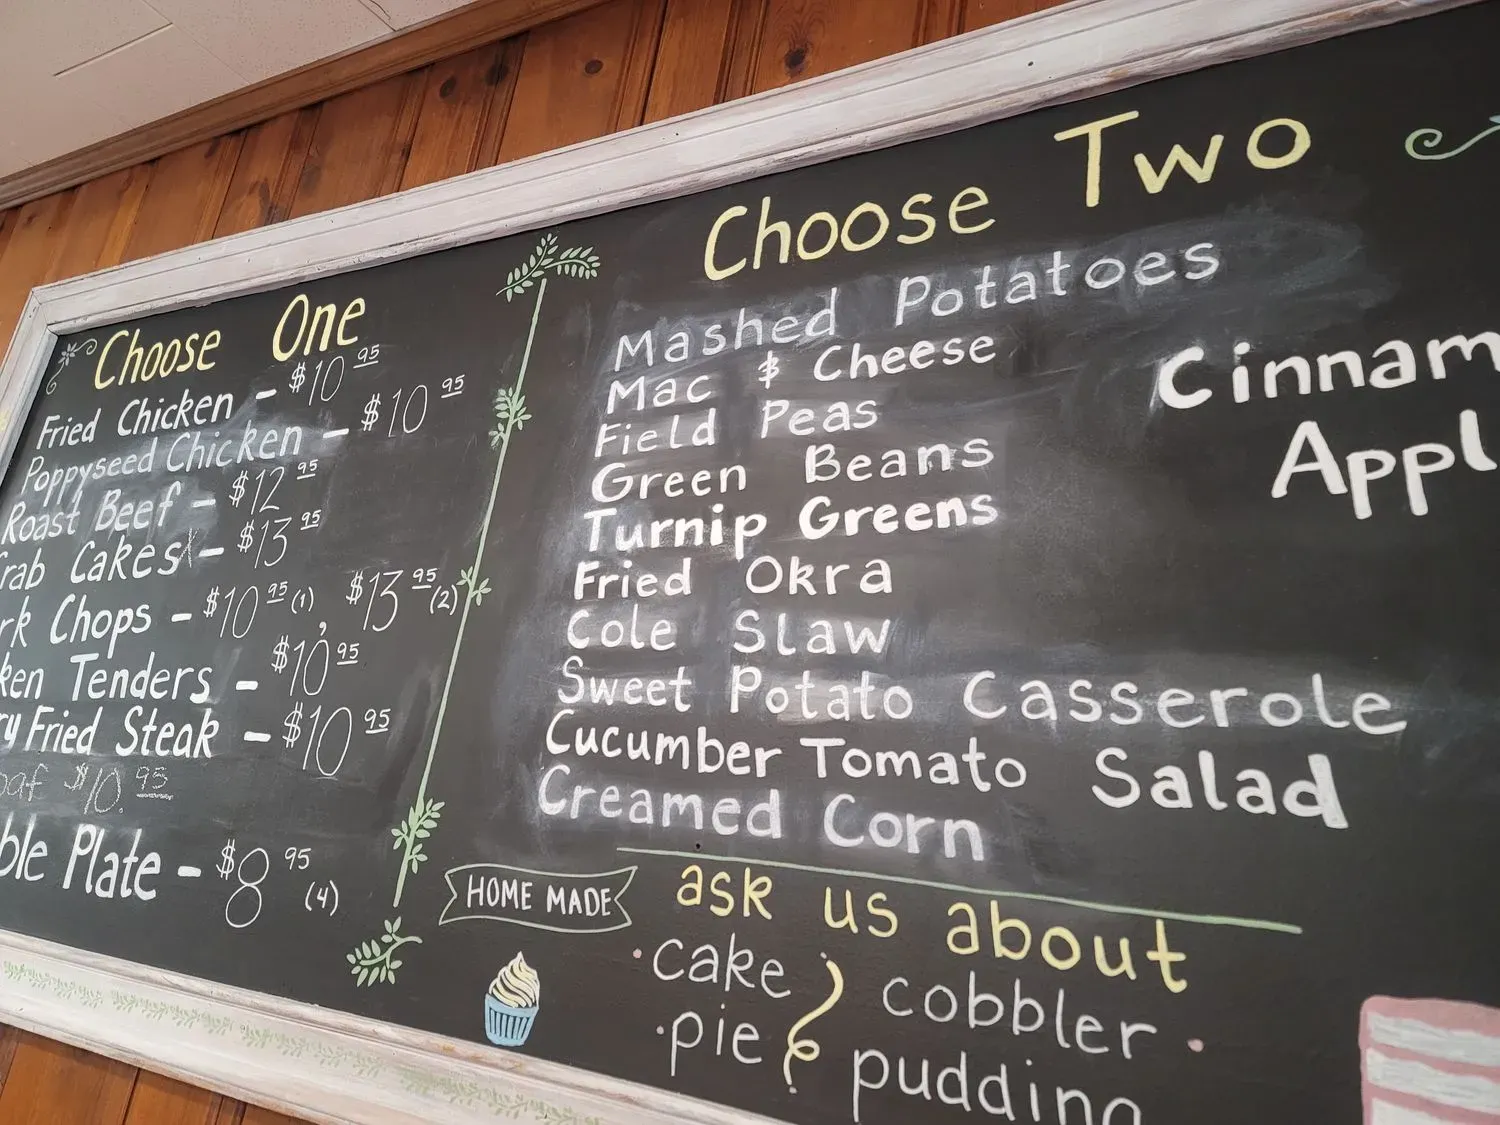 Choose One
Fried Chicken - $10 95
Poppyseed Chicken - $10 95
Roast Beef - $12 95
rab Cakes - $13 95
rk Chops - $10 95 (1), $13 95 (2)
ken Tenders - $10 95
ry Fried Steak - $10 95
oaf $10.95
ble Plate - $8 95 (4)
Choose Two
Mashed Potatoes
Mac & Cheese
Field Peas
Green Beans
Turnip Greens
Fried Okra
Cole Slaw
Sweet Potato Casserole
Cucumber Tomato Salad
Creamed Corn
Cinnam
Appl
HOME MADE
ask us about
• cake & cobbler •
• pie pudding